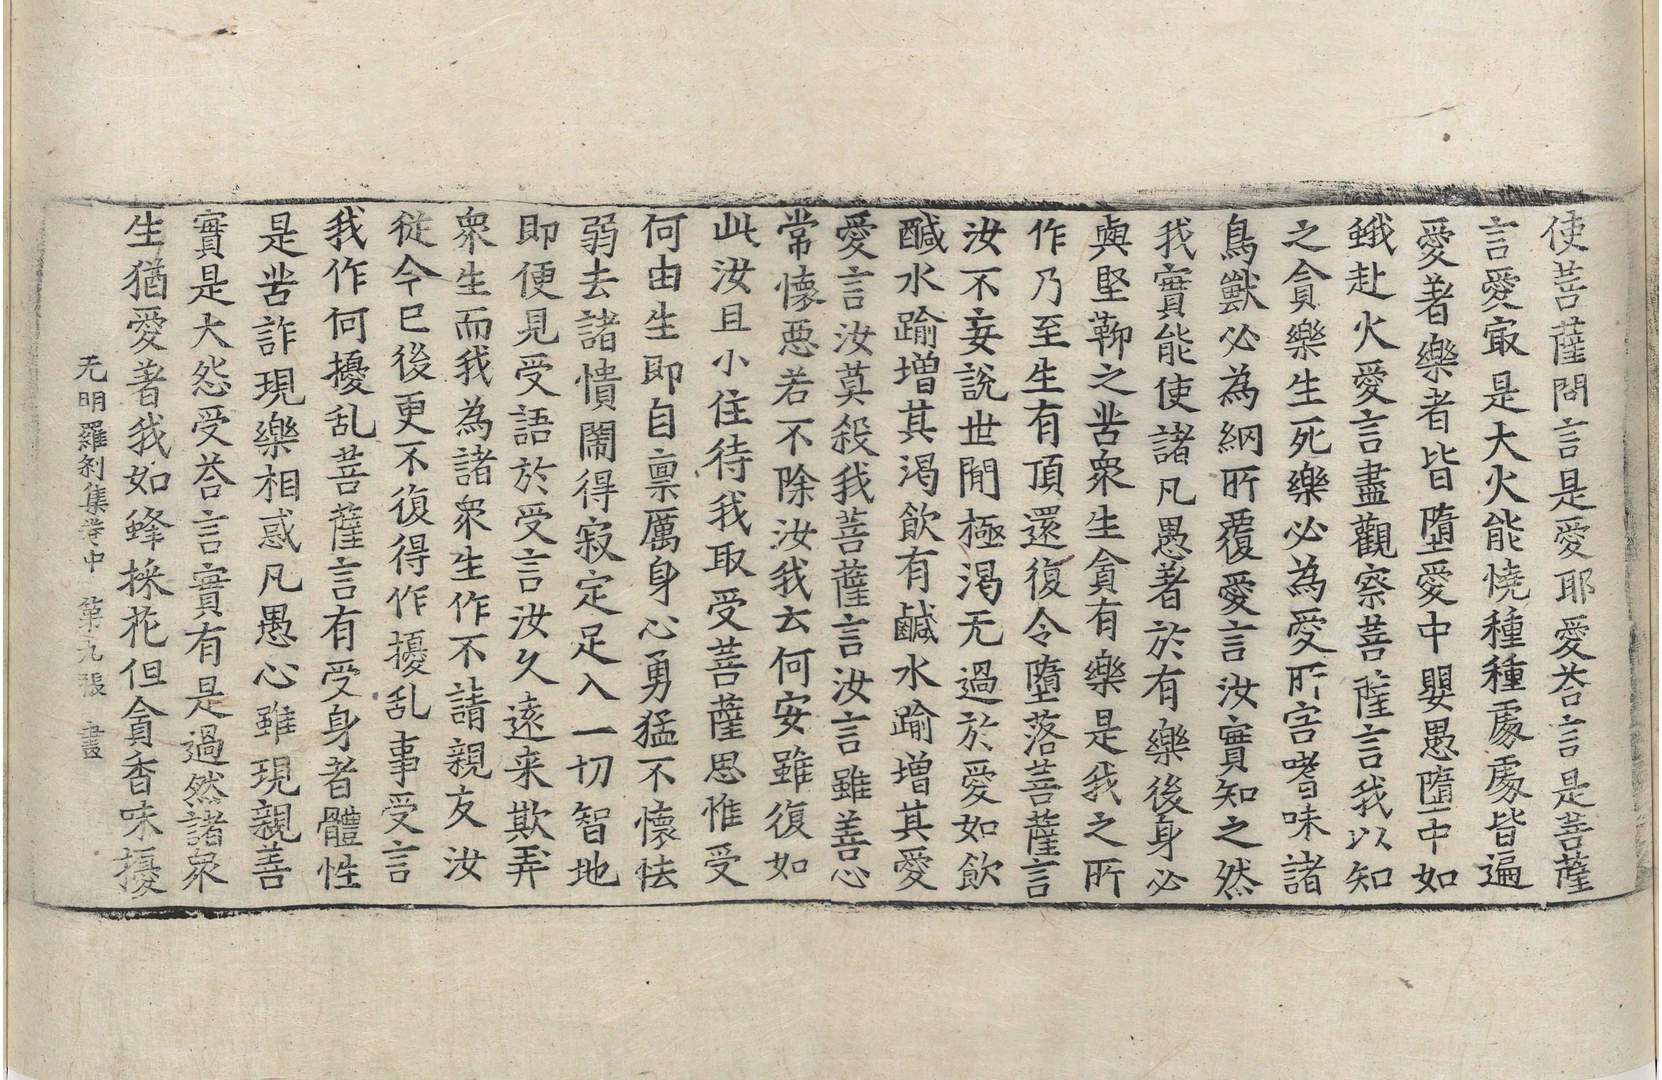 使菩薩問言是愛耶愛荅言是菩薩
言愛冣是大火能燒種種處處皆遍
愛著樂者皆墮愛中嬰愚墮中如
蛾赴火愛言盡觀察菩薩言我以知
之貪樂生死樂必為愛所害嗜味諸
鳥獸必為網所覆愛言汝實知之然
我實能使諸凡愚著於有樂後身必
與堅鞕之苦衆生貪有樂是我之所
作乃至生有頂還復令墮落菩薩言
汝不妄說世間極渴无過於愛如飲
醎水踰增其渴飲有鹹水踰增其愛
愛言汝莫殺我菩薩言汝言雖善心
常懷惡若不除汝我云何安雖復如
此汝且小住待我取受菩薩思惟受
何由生即自稟厲身心勇猛不懷怯
弱去諸憒閙得寂定足入一切智地
即便見受語於受言汝久遠来欺弄
衆生而我為諸衆生作不請親友汝
從今已後更不復得作擾乱事受言
我作何擾乱菩薩言有受身者體性
是苦詐現樂相惑凡愚心雖現親善
實是大怨受荅言實有是過然諸衆
生猶愛著我如蜂採花但貪香味擾
无明羅剎集卷中　第九張　畫